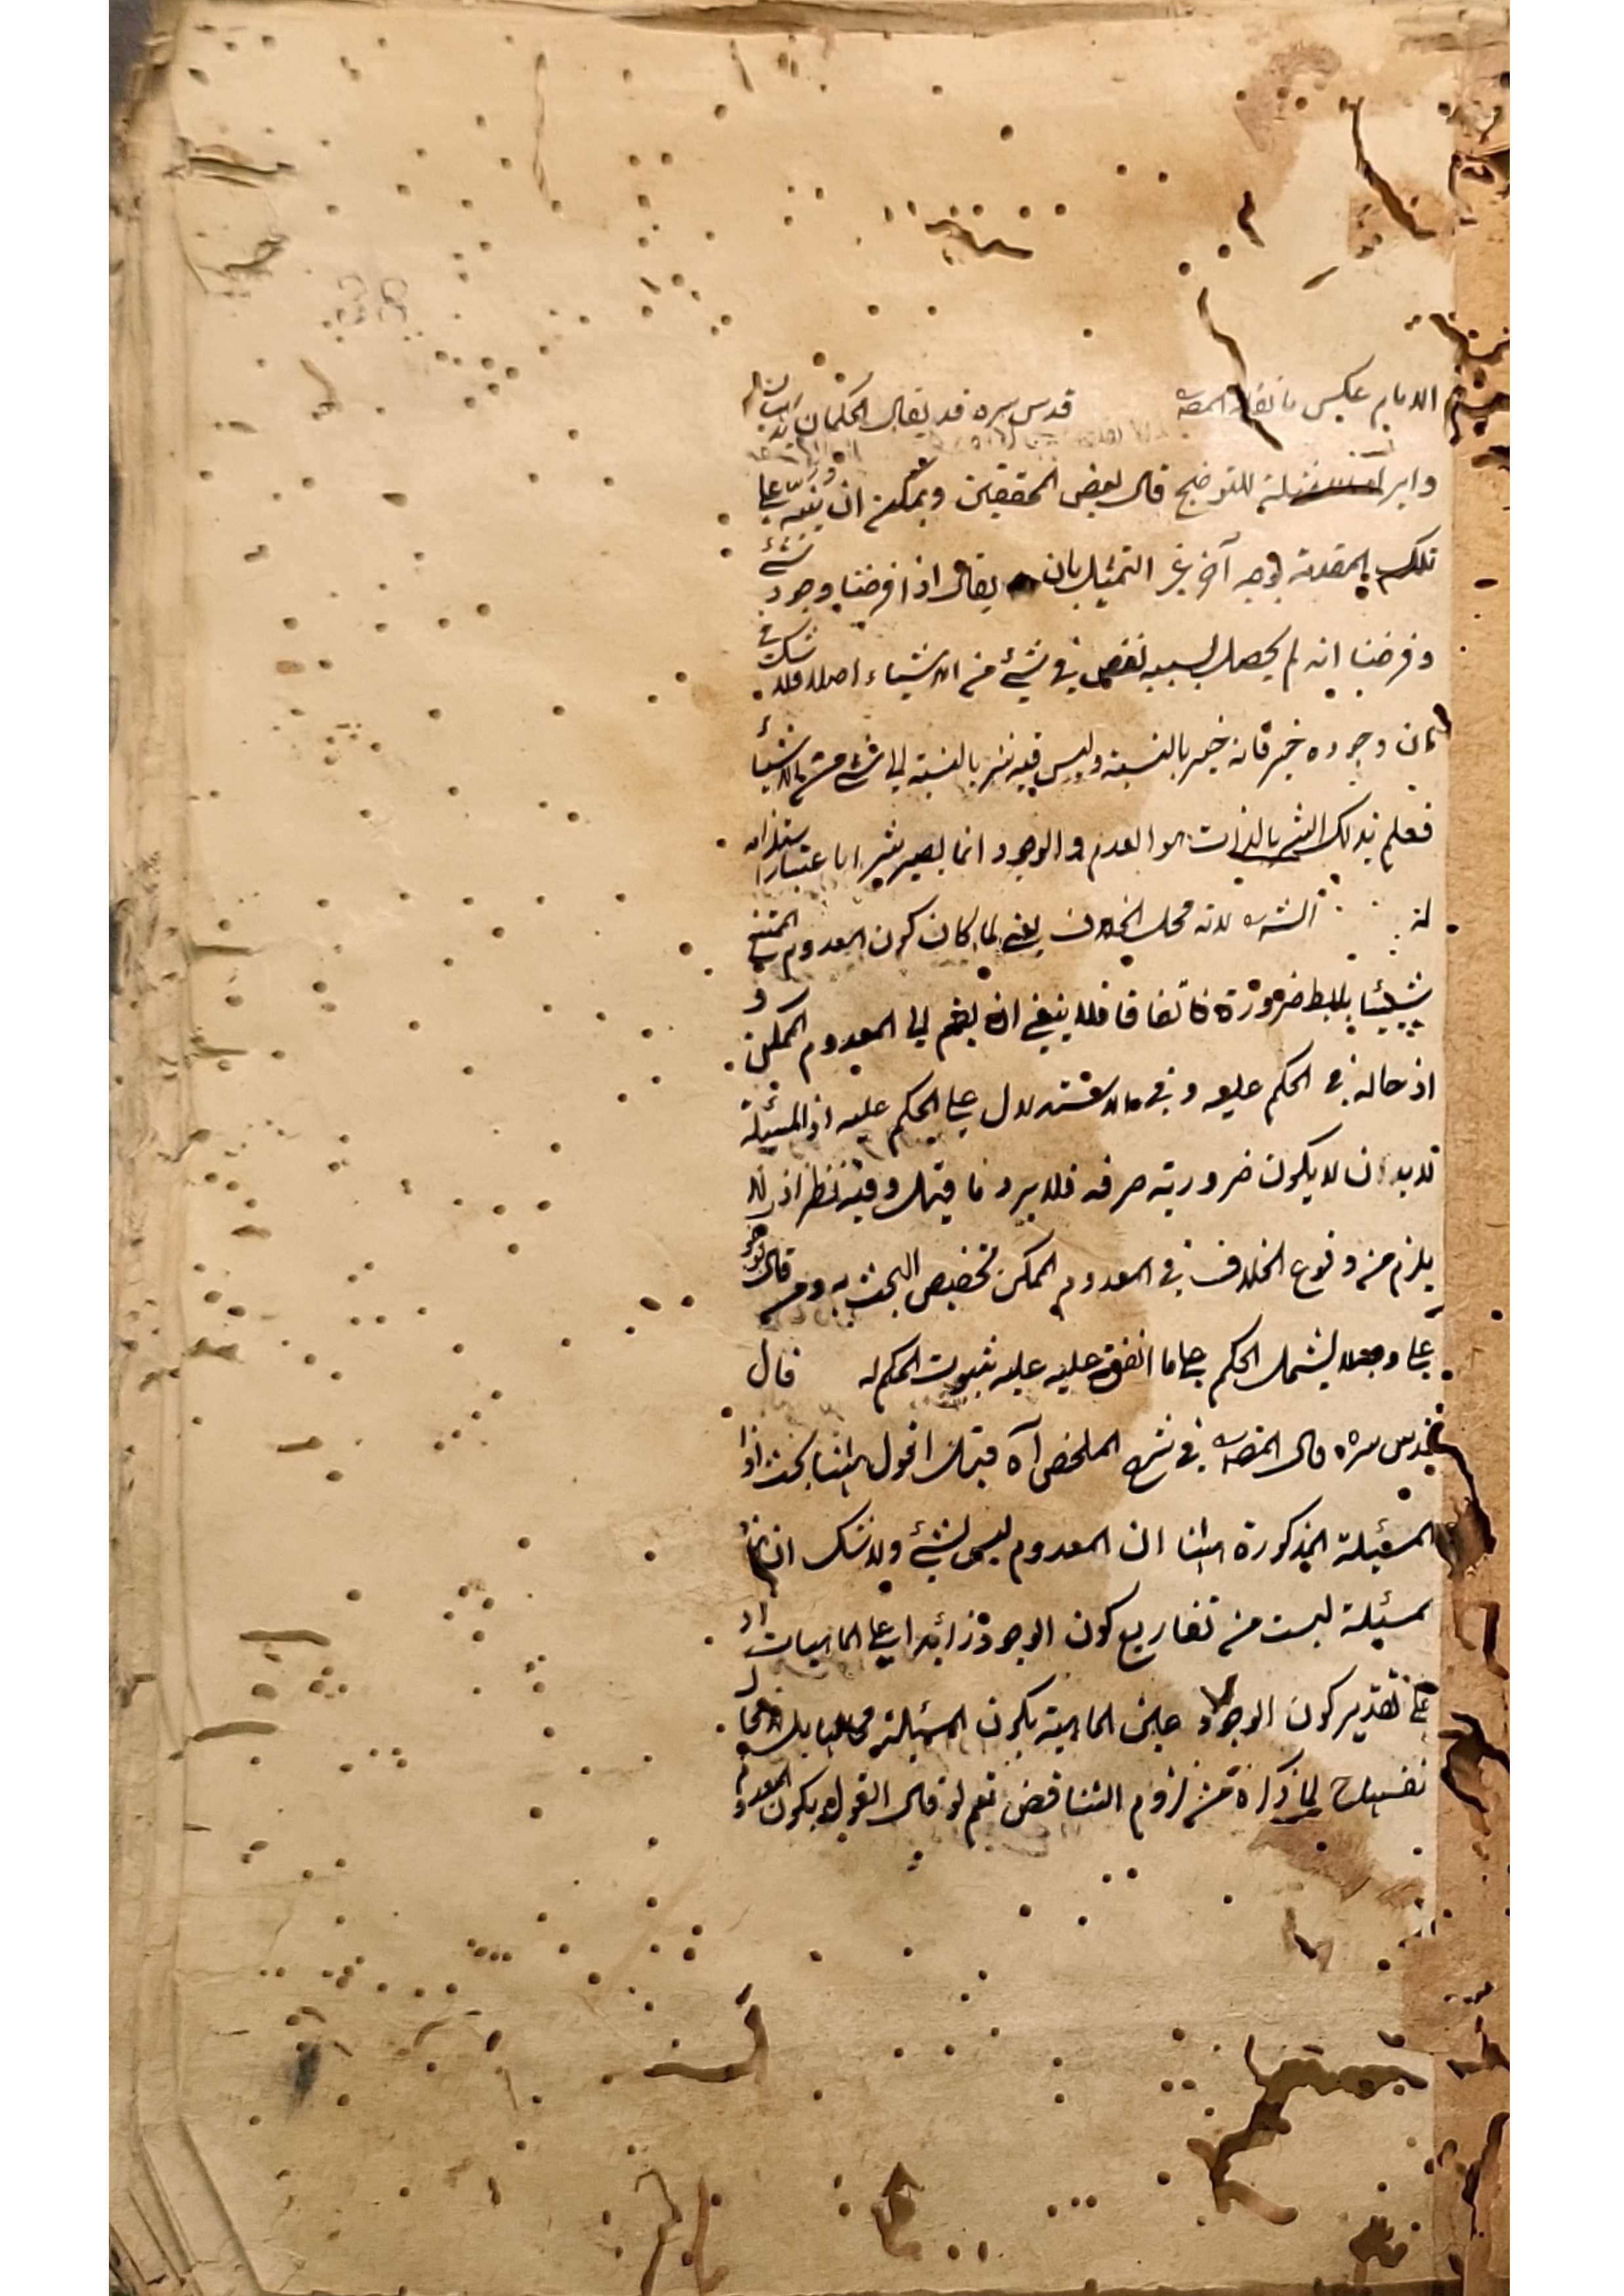 الامام عكس ما نقله المصه قدس سره قد يقال الحكمان بديهيان
وايراد الامثلة للتوضيح قال بعض المحققين ويمكن ان ينبه على
تلك المقدمة بوجه آخر غير التمثيل بان يقال اذا فرضنا وجود شئ
وفرضنا انه لم يحصل بسببه نقص في شئ من الاشياء اصلا فلا شك في
ان وجوده خير فانه خير بالنسبة وليس فيه شر بالنسبة الى شئ من الاشياء
فعلم بذلك الشر بالذات هو العدم والوجود انما يصير شرا باعتبار استلزامه
له لانه محل الخلاف يعني لما كان كون المعدوم الممتنع
شيئا باطلا ضرورة واتفاقا فلا ينبغي ان يضم الى المعدوم الممكن و
اذ حاله في الحكم عليه وفي الاستدلال على الحكم عليه اذ المسئلة
لابد ان لا يكون ضرورية صرفه فلا يرد ما قيل وفيه نظر اذ لا
يلزم من وقوع الخلاف في المعدوم الممكن تخصيص البحث به
على وجه يشمل الحكم على ما اتفق عليه عليه ثبوت الحكم له قال
قدس سره قال المصه في شرح الملخص آه قيل اقول ههنا بحث اذا
المسئيلة المذكورة ههنا ان المعدوم ليس بشئ ولا شك ان هذه
مسئيلة ليست من تفاريع كون الوجود زائدا على الماهيات اذ
على تقدير كون الوجود عين الماهية يكون المسئيلة
لما ذكره من لزوم التناقض نعم لو قال القول بكون المعدوم